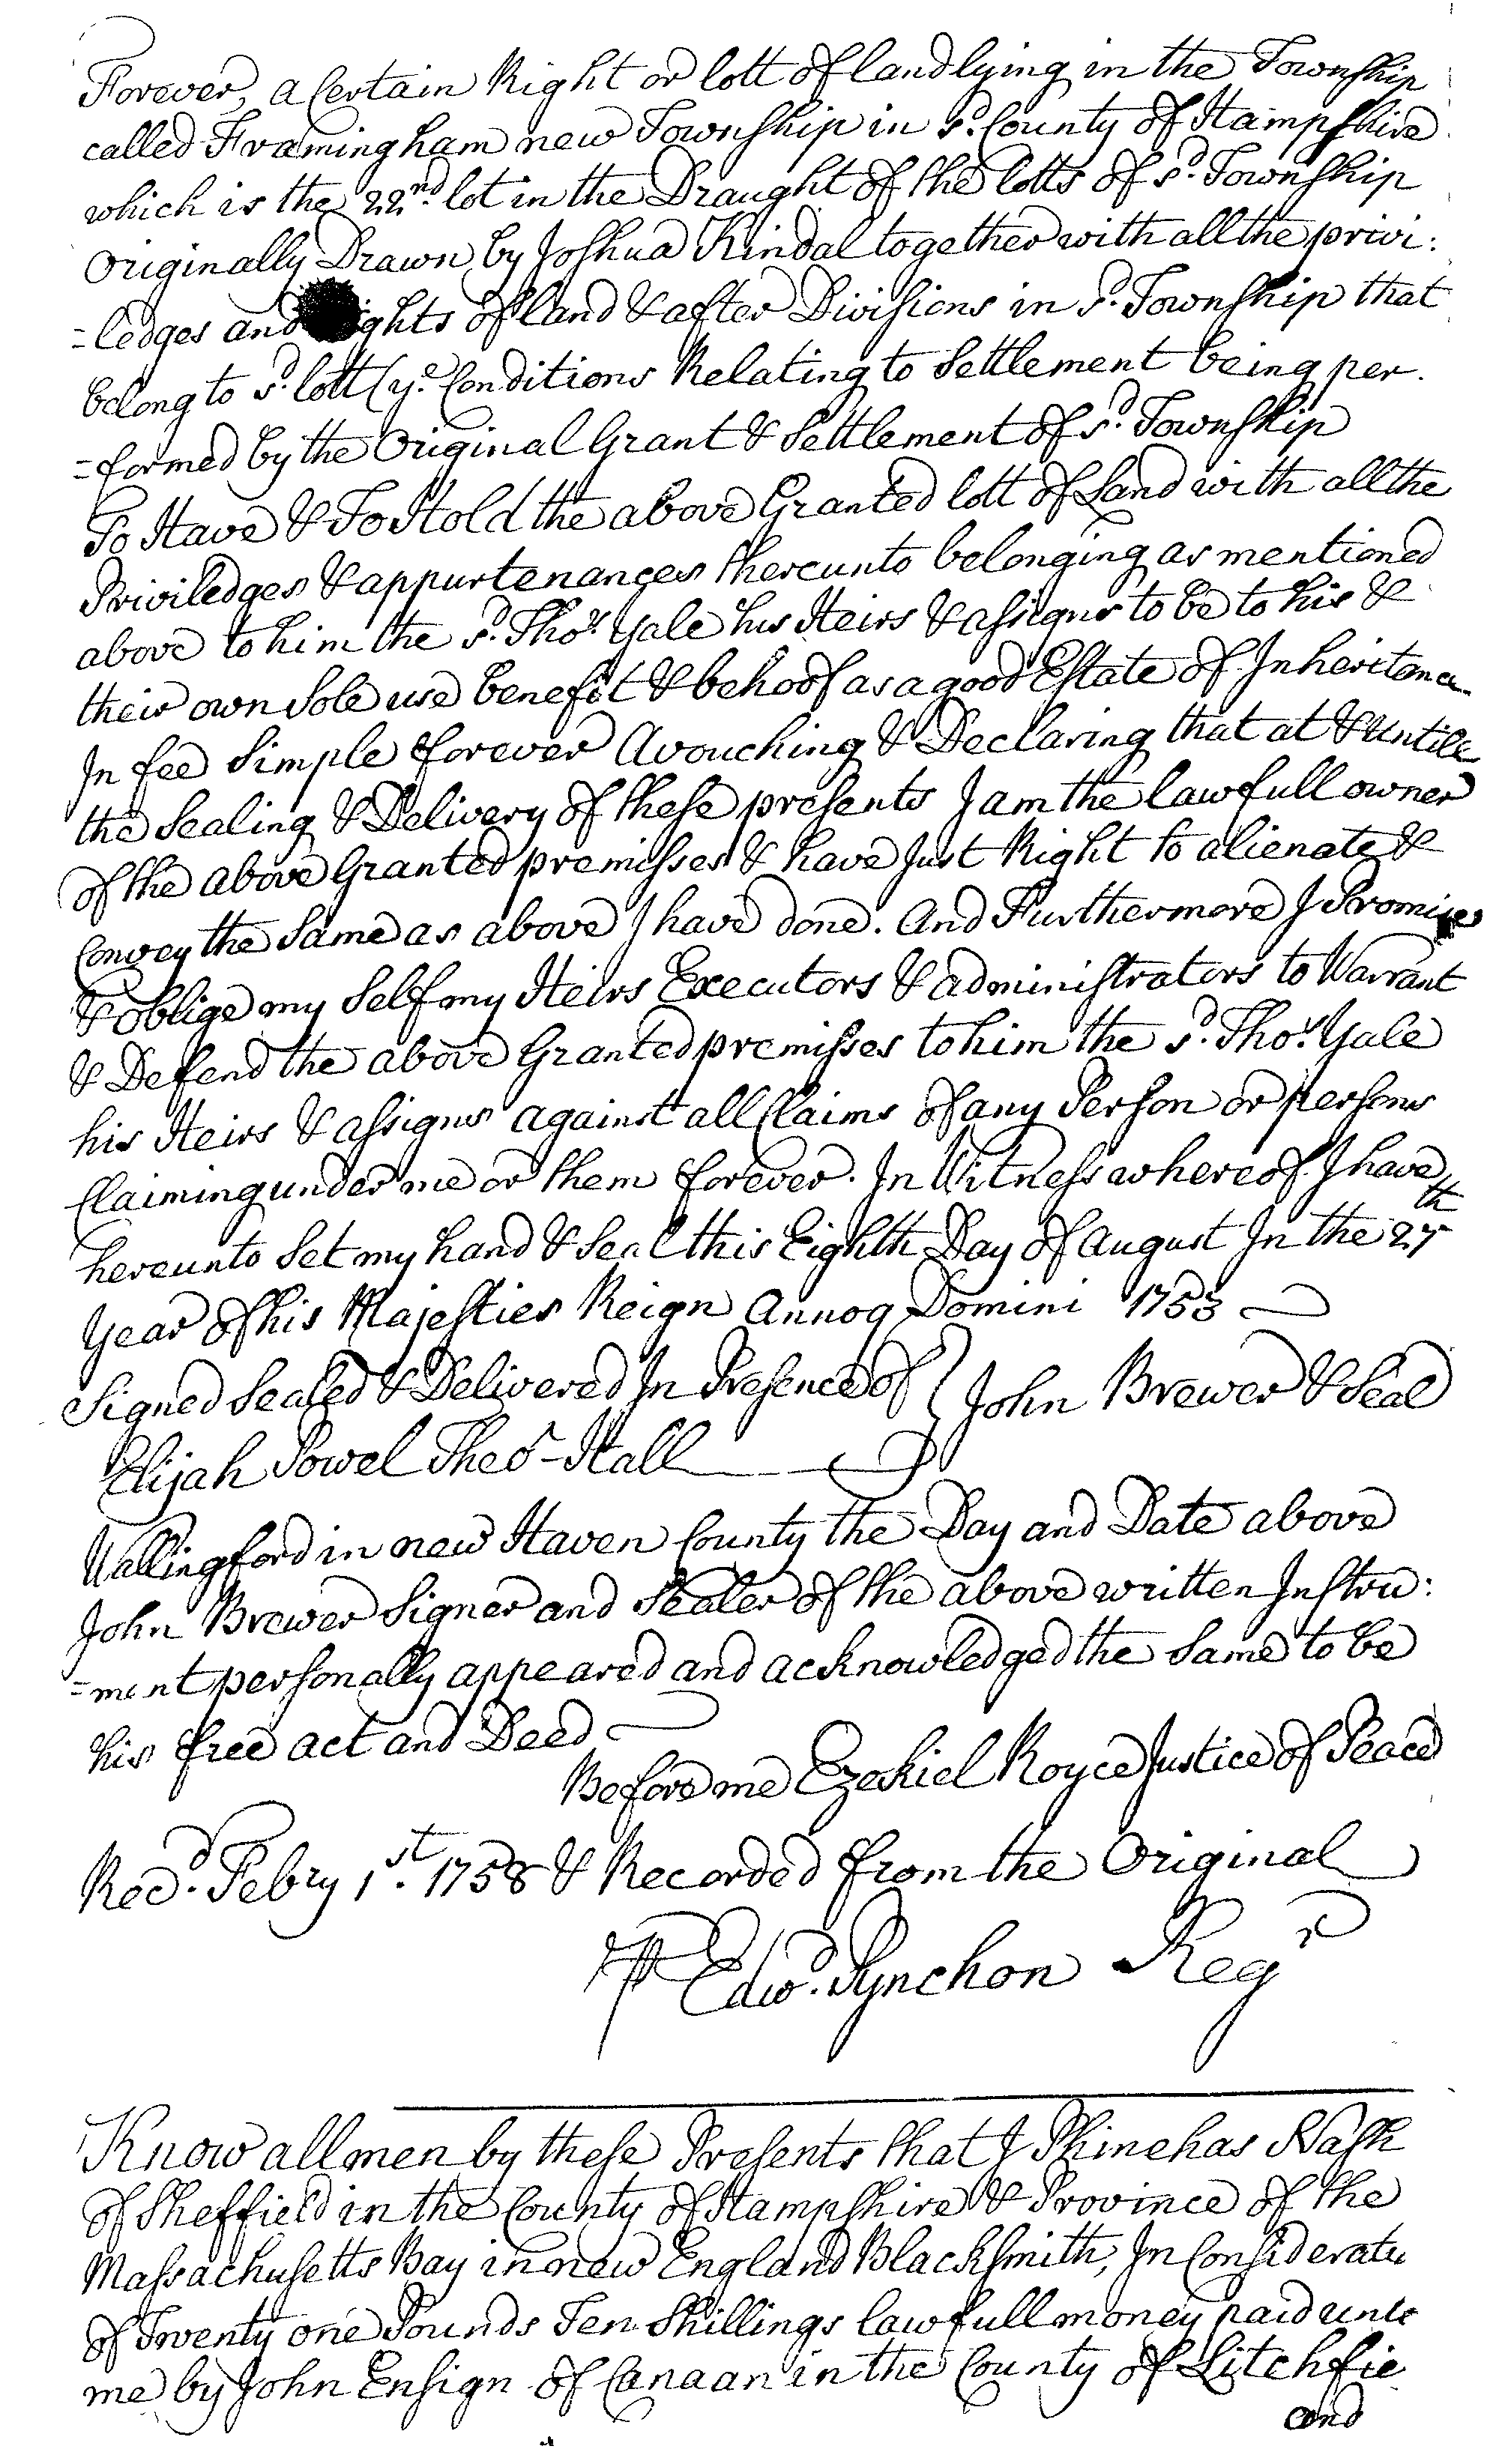 Forever, a Certain Right or lott of land lying in the Township
called Framingham new Township in sd. County of Hampshire
which is the 22nd. lot in the Draught of the lotts of sd. Township
Originally Drawn by Joshua Kindal together with all the privi:
=ledges and ights of land & after Divisions in sd. Township that
belong to sd. lott (ye. Conditions Relating to Settlement being per.
=formed by the Original Grant & Settlement of sd. Township
To Have & To Hold the above Granted lott of Land with all the
Priviledges & appurtenances thereunto belonging as mentioned
above to him the sd. Thos. Yale his Heirs & assigns to be to his &
their own Sole use benefit & behoof as a good Estate of Inheritance
In fee Simple forever Avouching & Declaring that at & Untill
the Sealing & Delivery of these presents I am the lawfull owner
of the above Granted premisses & have Just Right to alienate &
Convey the Same as above I have done. And Furthermore I Promise
& oblige my Self my Heirs Executors & administrators to Warrant
& Defend the above Granted premisses to him the sd. Thos. Yale
his Heirs & assigns against all Claims of any Person or persons
Claiming under me or them forever. In Witness whereof I have
hereunto Set my hand & Seal this Eighth Day of August In the 27th
Year of his Majesties Reign Annoq Domini 1753
Signed Sealed & Delivered In Presence of } John Brewer & Seal
Elijah Powel Theo - Hall
Wallingford in new Haven County the Day and Date above
John Brewer Signer and Sealer of the above written Instru:
=ment personally appeared and acknowledged the Same to be
his free act and Deed
Before me Ezekiel Royce Justice of Peace
Recd. Febry 1st. 1758 & Recorded from the Original
P Edwd. Pynchon Regr
Know all men by these Presents that I Phinehas Nash
of Sheffield in the County of Hampshire & Province of the
Massachusetts Bay in new England Blacksmith, In Consideratn
of Twenty one Pounds Ten Shillings lawfull money paid unto
me by John Ensign of Canaan in the County of Litchfie
and